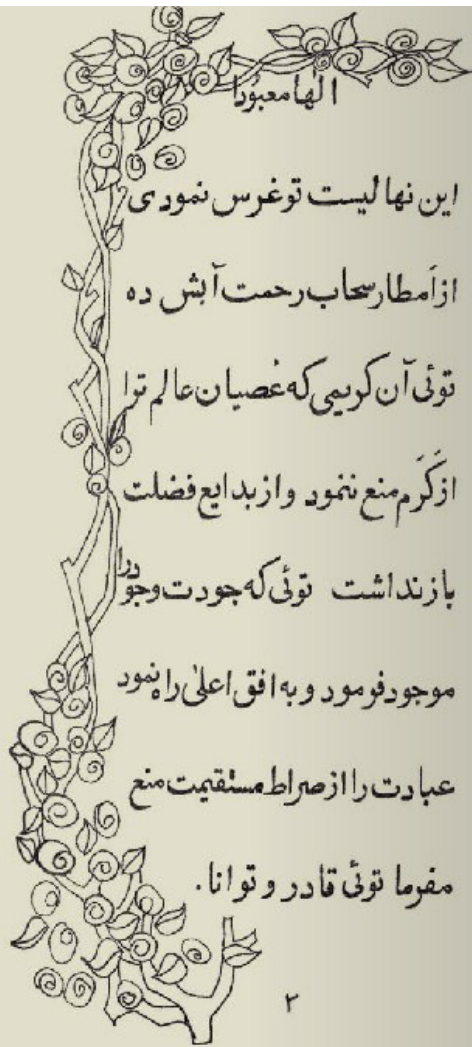 الٰها معبُودا
این نهالیست تو غرس نمودی
از اَمطار سحاب رحمت آبش ده
توئی آن کریمی که عُصیان عالم ترا
از کَرَم منع ننمود و از بدایع فضلت
باز نداشت توئی که جودت وجود را
موجود فرمود و به افق اعلیٰ راه نمود
عبادت را از صراط مستقیمت منع
مفرما توئی قادر و توانا.
۲